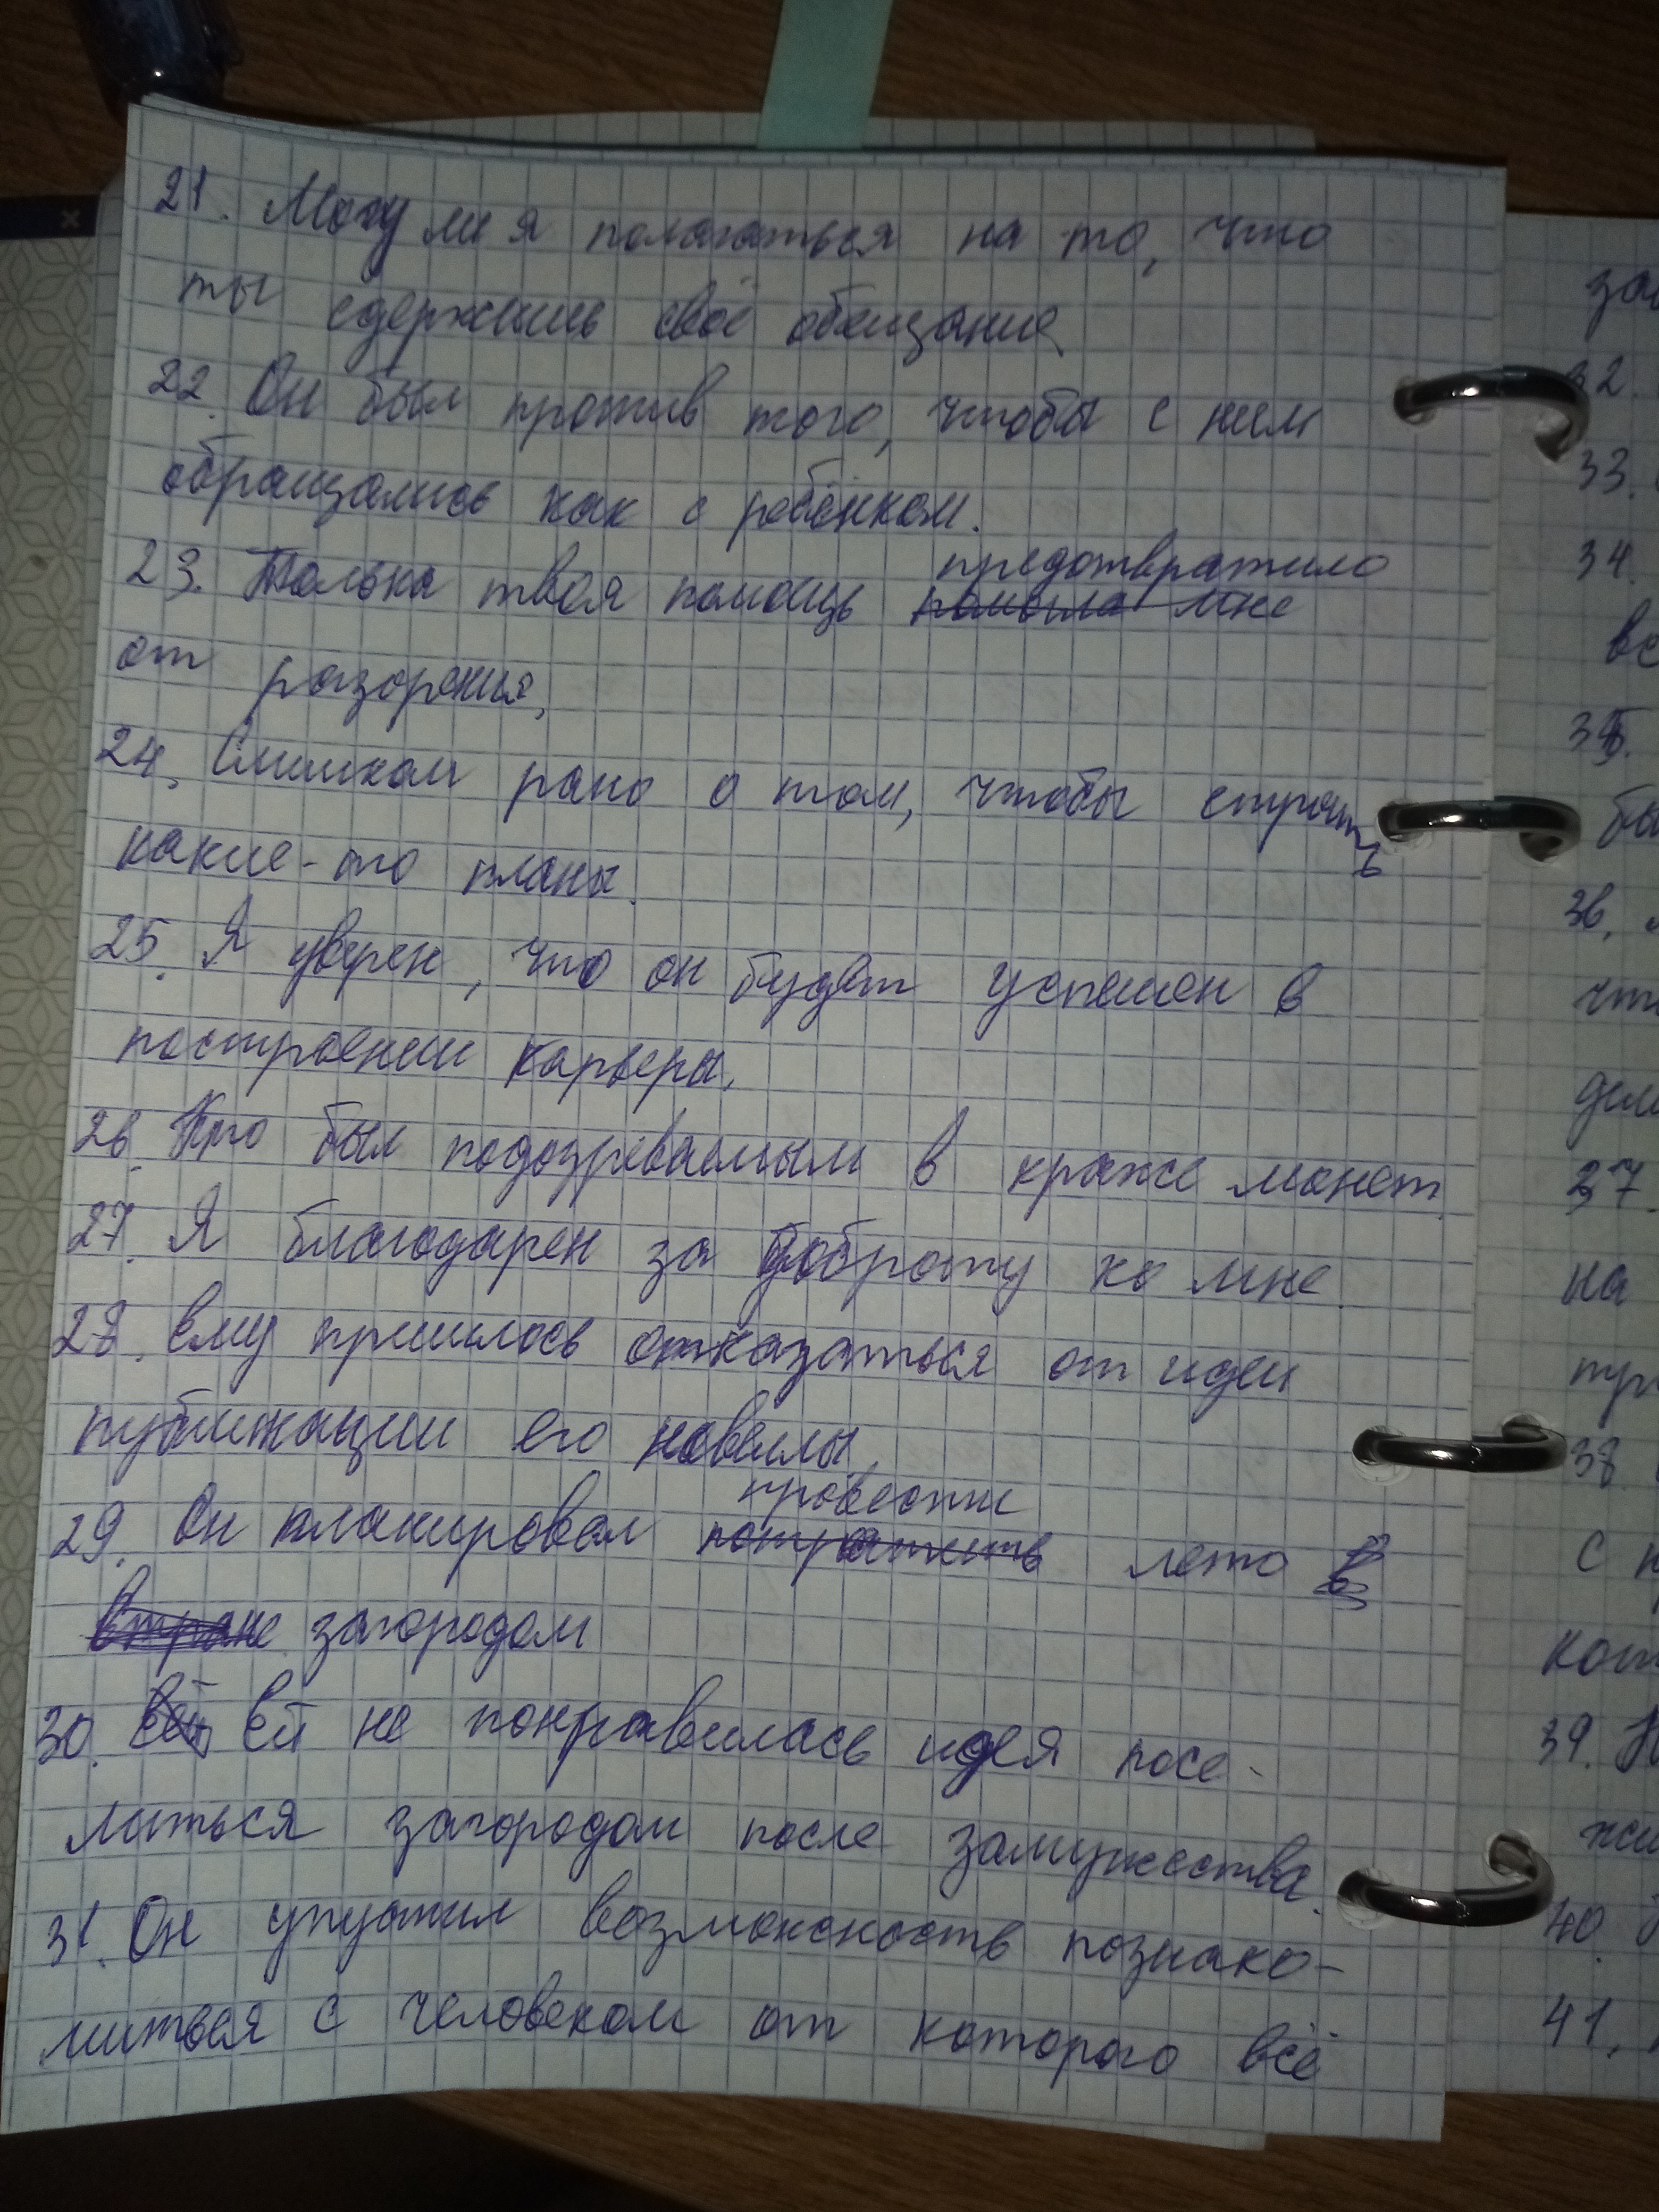 21. Могу ли я полагаться на то, что
ты сдержишь своё обещание
22. Он был против того, чтобы с ним
обращались как с ребёнком.
предотвратило
23. Только твоя помощь помогла мне
от разорения,
24. Слишком рано о том, чтобы строить
какие-то планы.
25. Я уверен, что он будет успешен в
построении карьеры.
26. Кто был подозреваемым в краже монет.
27. Я благодарен за доброту ко мне.
28. Ему пришлось отказаться от идеи
публикации его новеллы.
провести
29. Он планировал потратить лето в
стране загородом
30. Ей Ей не понравилась идея посе-
литься загородом после замужества.
31. Он упустил возможность познако-
миться с человеком от которого всё
32.
33.
34.
35.
36.
37.
на
38
с
39. Н
40.
41.